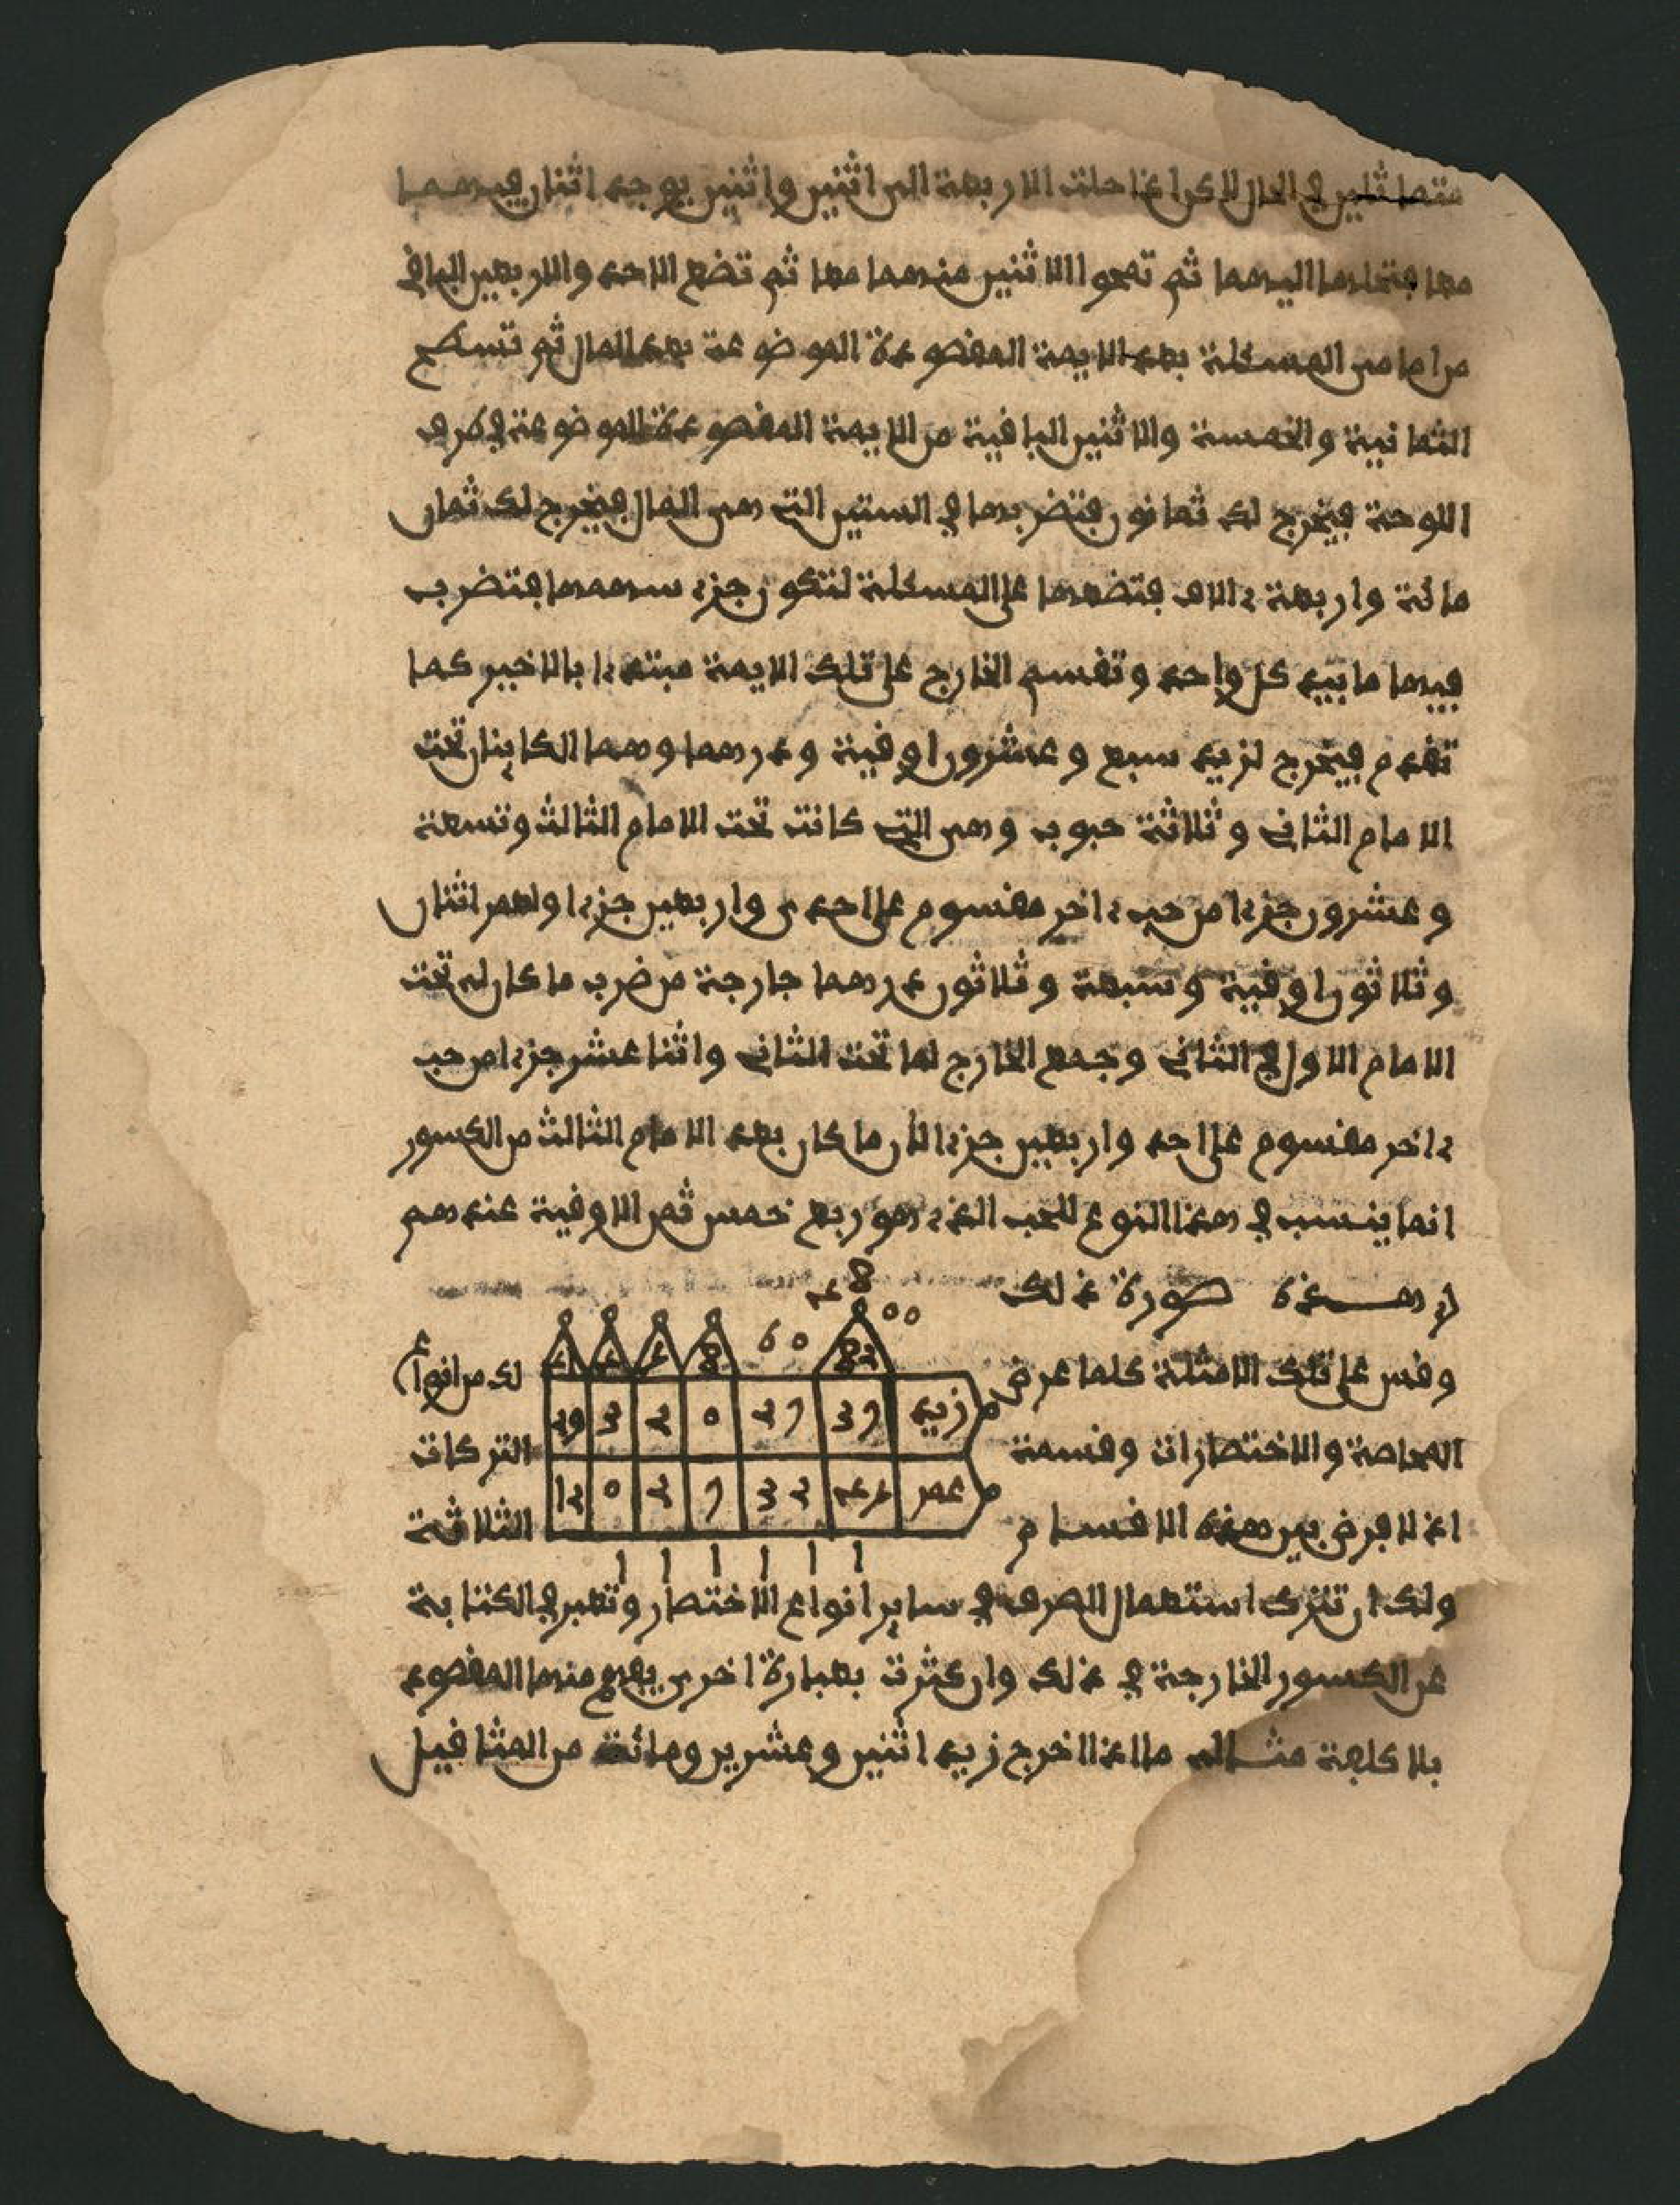 متماثلين في الحال لا كن اذا حلت الاربعة الى اثنين واثنين يوجد اثنان فيهما
معا فتحلهما اليهما ثم تمحوا الاثنين منهما معا ثم تضع الاحد والاربعين الباقي
من امامي المسئلة بعد الايمة المقصودة الموضوعة بعد المال ثم تسطح
الثمانية والخمسة والاثنين الباقية من الايمة المقصودة الموضوعة في طرف
اللوحة فيخرج لك ثمانون فتضربها في الستين التي هي المال فيخرج لك ثمان
مائة واربعة ءالاف فتضعها على المسئلة لتكون جزء سهمها فتضرب
فيها ما بيد كل واحد وتقسم الخارج على تلك الايمة مبتدءا بالاخير كما
تقدم فيخرج لزيد سبع وعشرون اوقية ودرهما وهما الكاينان تحت
الامام الثاني وثلاثة حبوب وهي التي كانت تحت الامام الثالث وتسعة
وعشرون جزءا من حب ءاخر مقسوم على احدى واربعين جزءا ولعمر اثنان
وثلاثون اوقية وسبعة وثلاثون درهما جارجة من ضرب ما كان له تحت
الامام الاول في الثاني وجمع الخارج لما تحت الثاني واثنا عشر جزءا من حب
ءاخر مقسوم على احد واربعين جزءا لان ما كان بعد الامام الثالث من الكسور
انما ينسب في هذا النوع للحب الذي هو ربع خمس ثمن الاوقية عندهم
وهــذه صورة ذلك
وقس على تلك الامثلة كلما عرض لك من انواع
المحاصة والاختصارات وقسمة التركات
اذ لا فرض بين هذه الاقسام الثلاثة
زيد
عمر
ولك ان تترك استعمال الصرف في ساير انواع الاختصار وتعبر في الكتابة
عن الكسور الخارجة في ذلك وان كثرت بعبارة اخرى يفهم منها المقصود
بلا كلفة مثاله ما اذا اخرج زيد اثنين وعشرين ومائة من المثاقيل